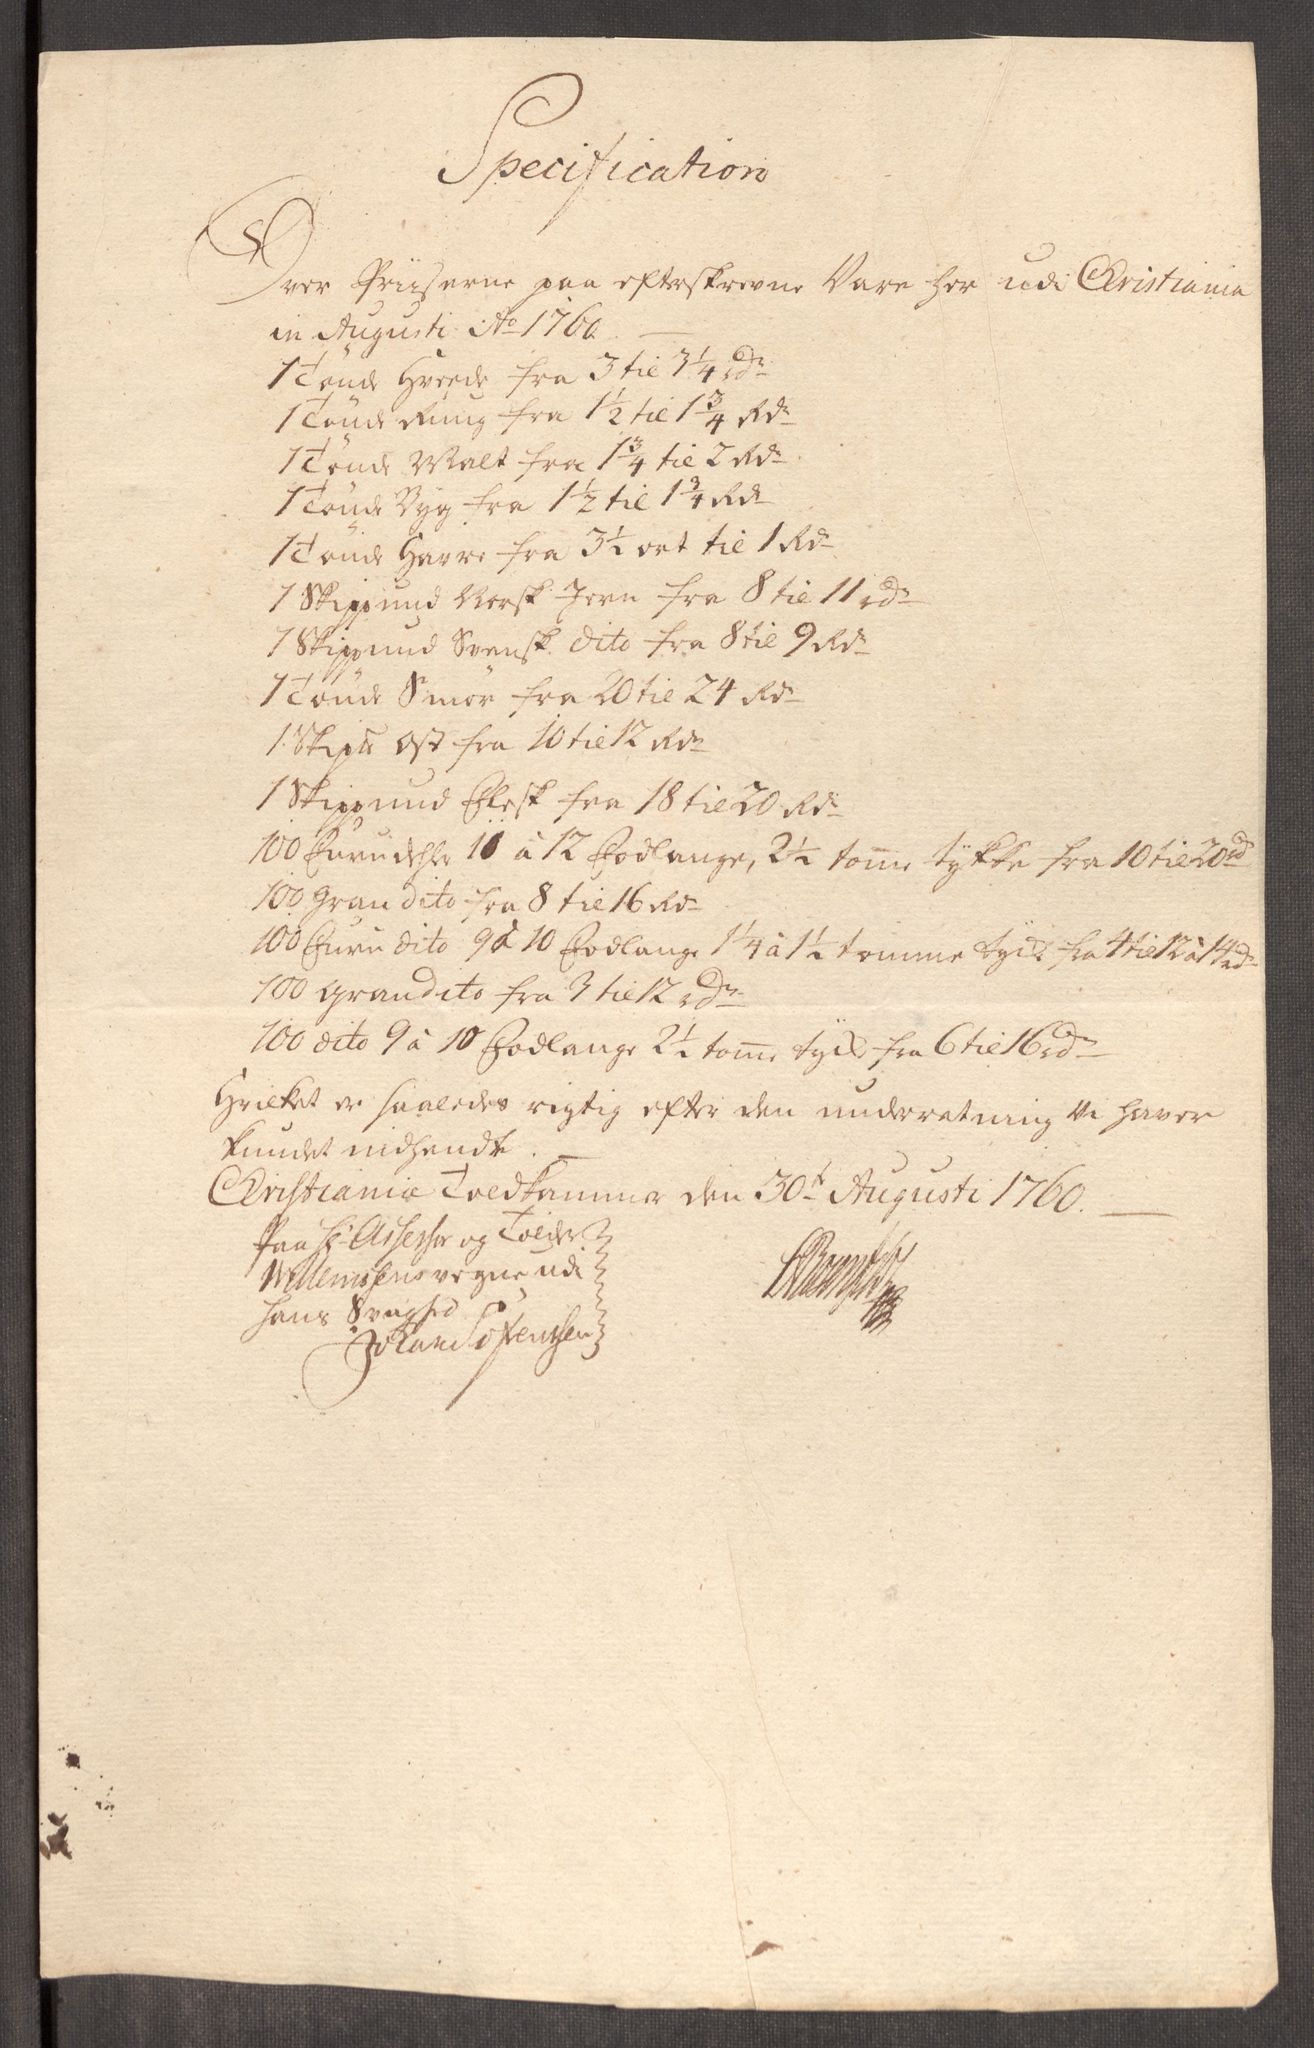 Specification
Over Priiserne paa efterskrevne Vare her udi Christiania
in Augusti Ao 1760
1 Tönde Hvede fra 3 til 3 1/4 rdr
1 Tönde Rüug fra 1 1/2 til 1 3/4 Rdr
1 Tönde Malt fra 1 3/4 til 2 Rdr
1 Tönde Byg fra 1 1/2 til 1 3/4 Rdr
1 Tönde Havre fra 3 1/2 ort til 1 Rdr
1 Skippund Norsk Jern fra 8 til 11 rdr
1 Skippund Svensk dito fra 8 til 9 Rdr
1 Tönde Smör fra 20 til 24 Rdr
1 Skip℔ Ost fra 10 til 12 Rdr
1 Skippund Flesk fra 18 til 20 Rdr
100 Furu dehler 10 à 12 Fodlange, 2 1/2 tome tykke fra 10 til 20 rd
100 gran dito fra 8 til 16 Rdr
100 Furu dito 9 à 10 Fodlange 1 1/4 à 1 1/2 tomme tyck fra 4 til 12 à 14 rdr
100 gran dito fra 3 til 12 rdr
100 dito 9 à 10 Fodlange 2 1/2 tome tyck fra 6 til 16 rdr
Hvilket er saaledes rigtig efter den underretning vi haver
kundet indhendte.
Christianiæ Toldkammer den 30te Augusti 1760.
Paa Hr Assessor og Tolder
Willemsens vegne udi
hans Svaghed